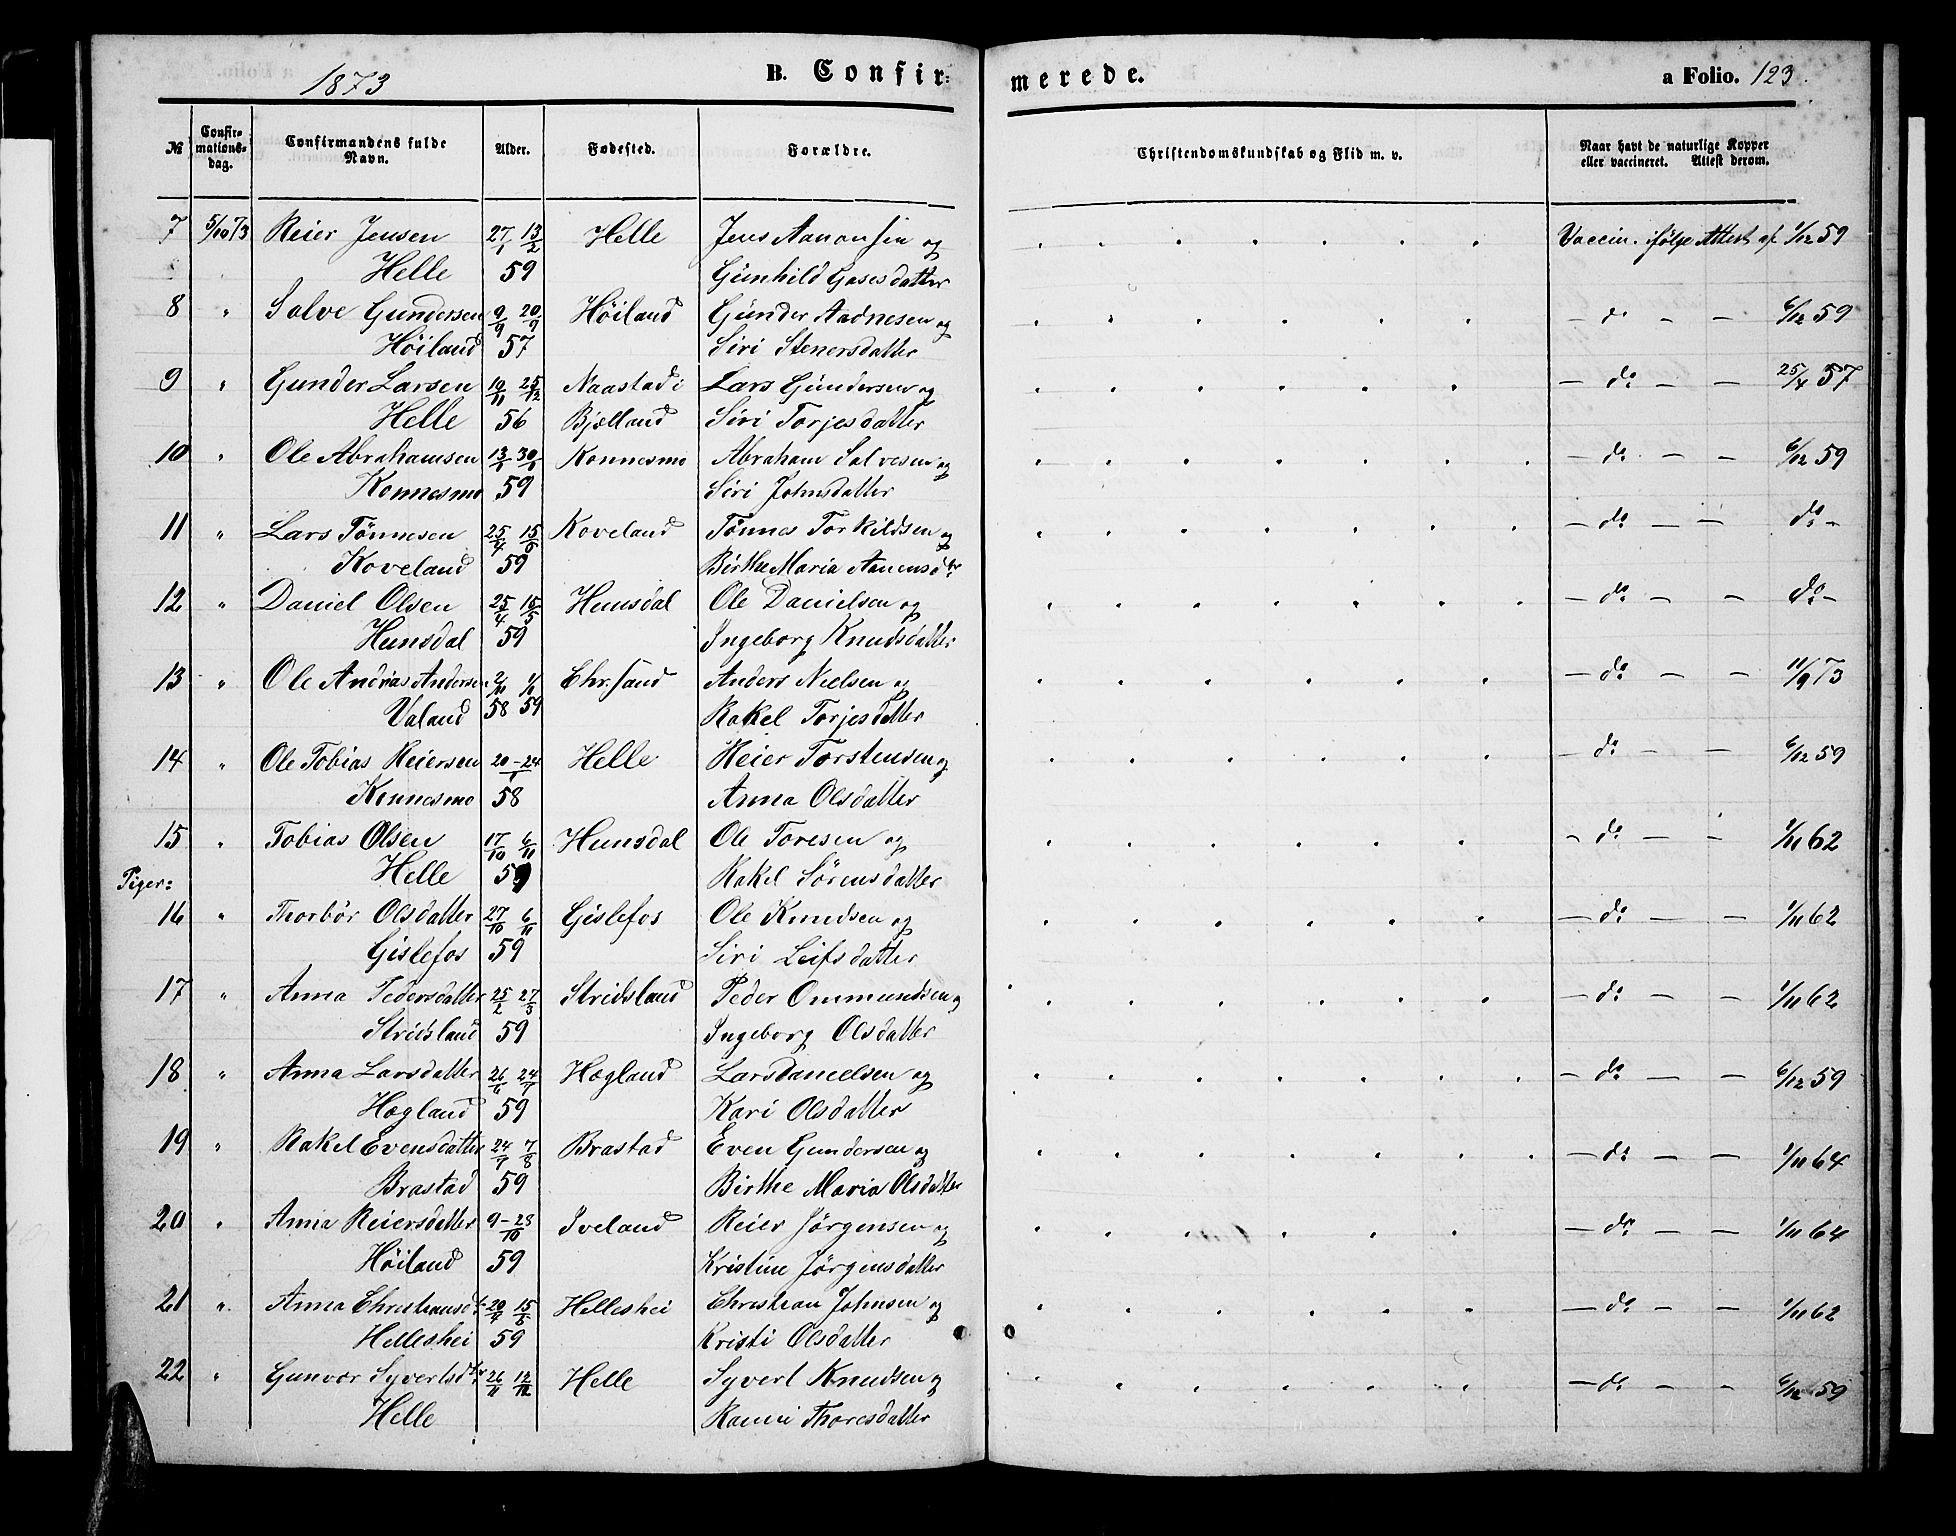 1873
B. Confir-
merede.
a Folio. 123.
№
Confir-
mations-
dag.
Confirmandens fulde
Navn.
Alder.
Fødested.
Forældre.
Christendomskundskab og Flid m. v.
Naar havt de naturlige Kopper
eller vaccineret. Attest derom.
7 5/10 73 Reier Jensen 27/1 13/2 Helle Jens Aanonsen og Vaccin. ifølge Attest af 1/12 59
Helle 59 Gunhild Gasesdatter
8 " Salve Gundersen 9/9 20/9 Høiland Gunder Aadnesen og – do – – 6/12 59
Høiland 57 Siri Stenersdatter
9 " Gunder Larsen 19/11 25/12 Naastad i Lars Gundersen og – do – – 25/4 57
Helle 56 Bjelland Siri Torjesdatter
10 " Ole Abrahamsen 13/1 30/1 Konnesmo Abraham Salvesen og – do – – 6/12 59
Konnesmo 59 Siri Johnsdatter
11 " Lars Tönnesen 25/4 15/5 Koveland Tönnes Torkildsen og – do – – do –
Koveland 59 Birthe Maria Aanensdr
12 " Daniel Olsen 25/4 15/5 Hunsdal Ole Danielsen og – do – – do –
Hunsdal 59 Ingeborg Knudsdatter
13 " Ole Andrias Andersen 2/10 1/1 Chr.sand Anders Nielsen og – do – – 11/9 73
Valand 58 59 Rakel Torjesdatter
14 " Ole Tobias Reiersen 20–24/1 Helle Reier Torstensen og – do – – 6/12 59
Konnesmo 58 Anna Olsdatter
15 " Tobias Olsen 17/10 6/11 Hunsdal Ole Toresen og – do – – 1/11 62
Helle 59 Rakel Sörensdatter
Piger:
16 " Thorbör Olsdatter 27/10 6/11 Gislefos Ole Knudsen og – do – – 1/11 62
Gislefos 59 Siri Leifsdatter
17 " Anna Pedersdatter 25/2 27/3 Stridsland Peder Ommundsen og – do – – 1/11 62
Stridsland 59 Ingeborg Olsdatter
18 " Anna Larsdatter 26/6 24/7 Hægland Lars Danielsen og – do – – 6/12 59
Hægland 59 Kari Olsdatter
19 " Rakel Evensdatter 24/7 7/8 Brastad Even Gundersen og – do – – 1/11 64
Brastad 59 Birthe Maria Olsdatter
20 " Anna Reiersdatter 9–28/10 Iveland Reier Jörgensen og – do – – 1/11 64
Høiland 59 Kristine Jörgensdatter
21 " Anna Christiansdt. 20/4 15/5 Helleshei Christian Johnsen og – do – – 1/11 62
Helleshei 59 Kristi Olsdatter
22 " Gunvor Syvertsdtr 26/11 12/12 Helle Syvert Knudsen og – do – – 6/12 59
Helle Ranni Thoresdatter